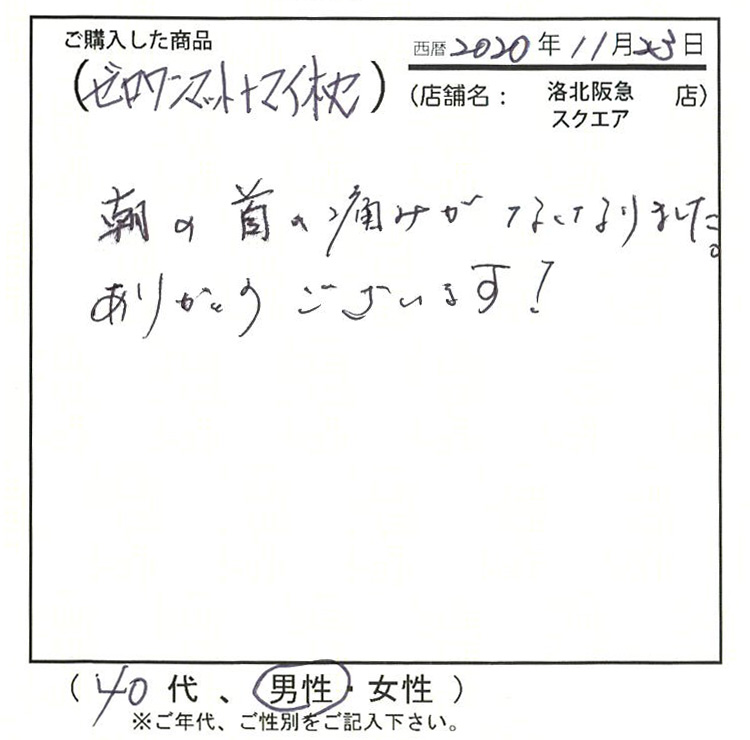 ご購入した商品
西暦2020年11月23日
(ゼロワンマット+マイ枕)
(店舗名： 洛北阪急スクエア 店)
朝の首の痛みがなくなりました。
ありがとうございます！
(40代、男性・女性)
※ご年代、ご性別をご記入下さい。